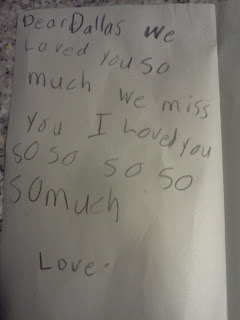 Dear Dallas we
Loved you so
much we miss
you I Loved you
so so so so
so much
Love-